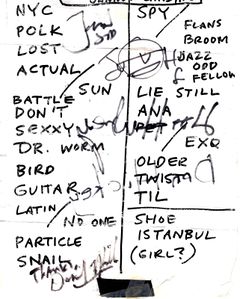 NYC
POLK
LOST
ACTUAL
SUN
BATTLE
DON'T
SEXXY
DR. WORM
BIRD
GUITAR
LATIN
NO ONE
PARTICLE
SNAIL
Thanks
SPY
FLANS
BROOM
JAZZ
ODD
FELLOW
LIE STILL
ANA
PET
EXQ
OLDER
TWIST
TIL
SHOE
ISTANBUL
(GIRL?)